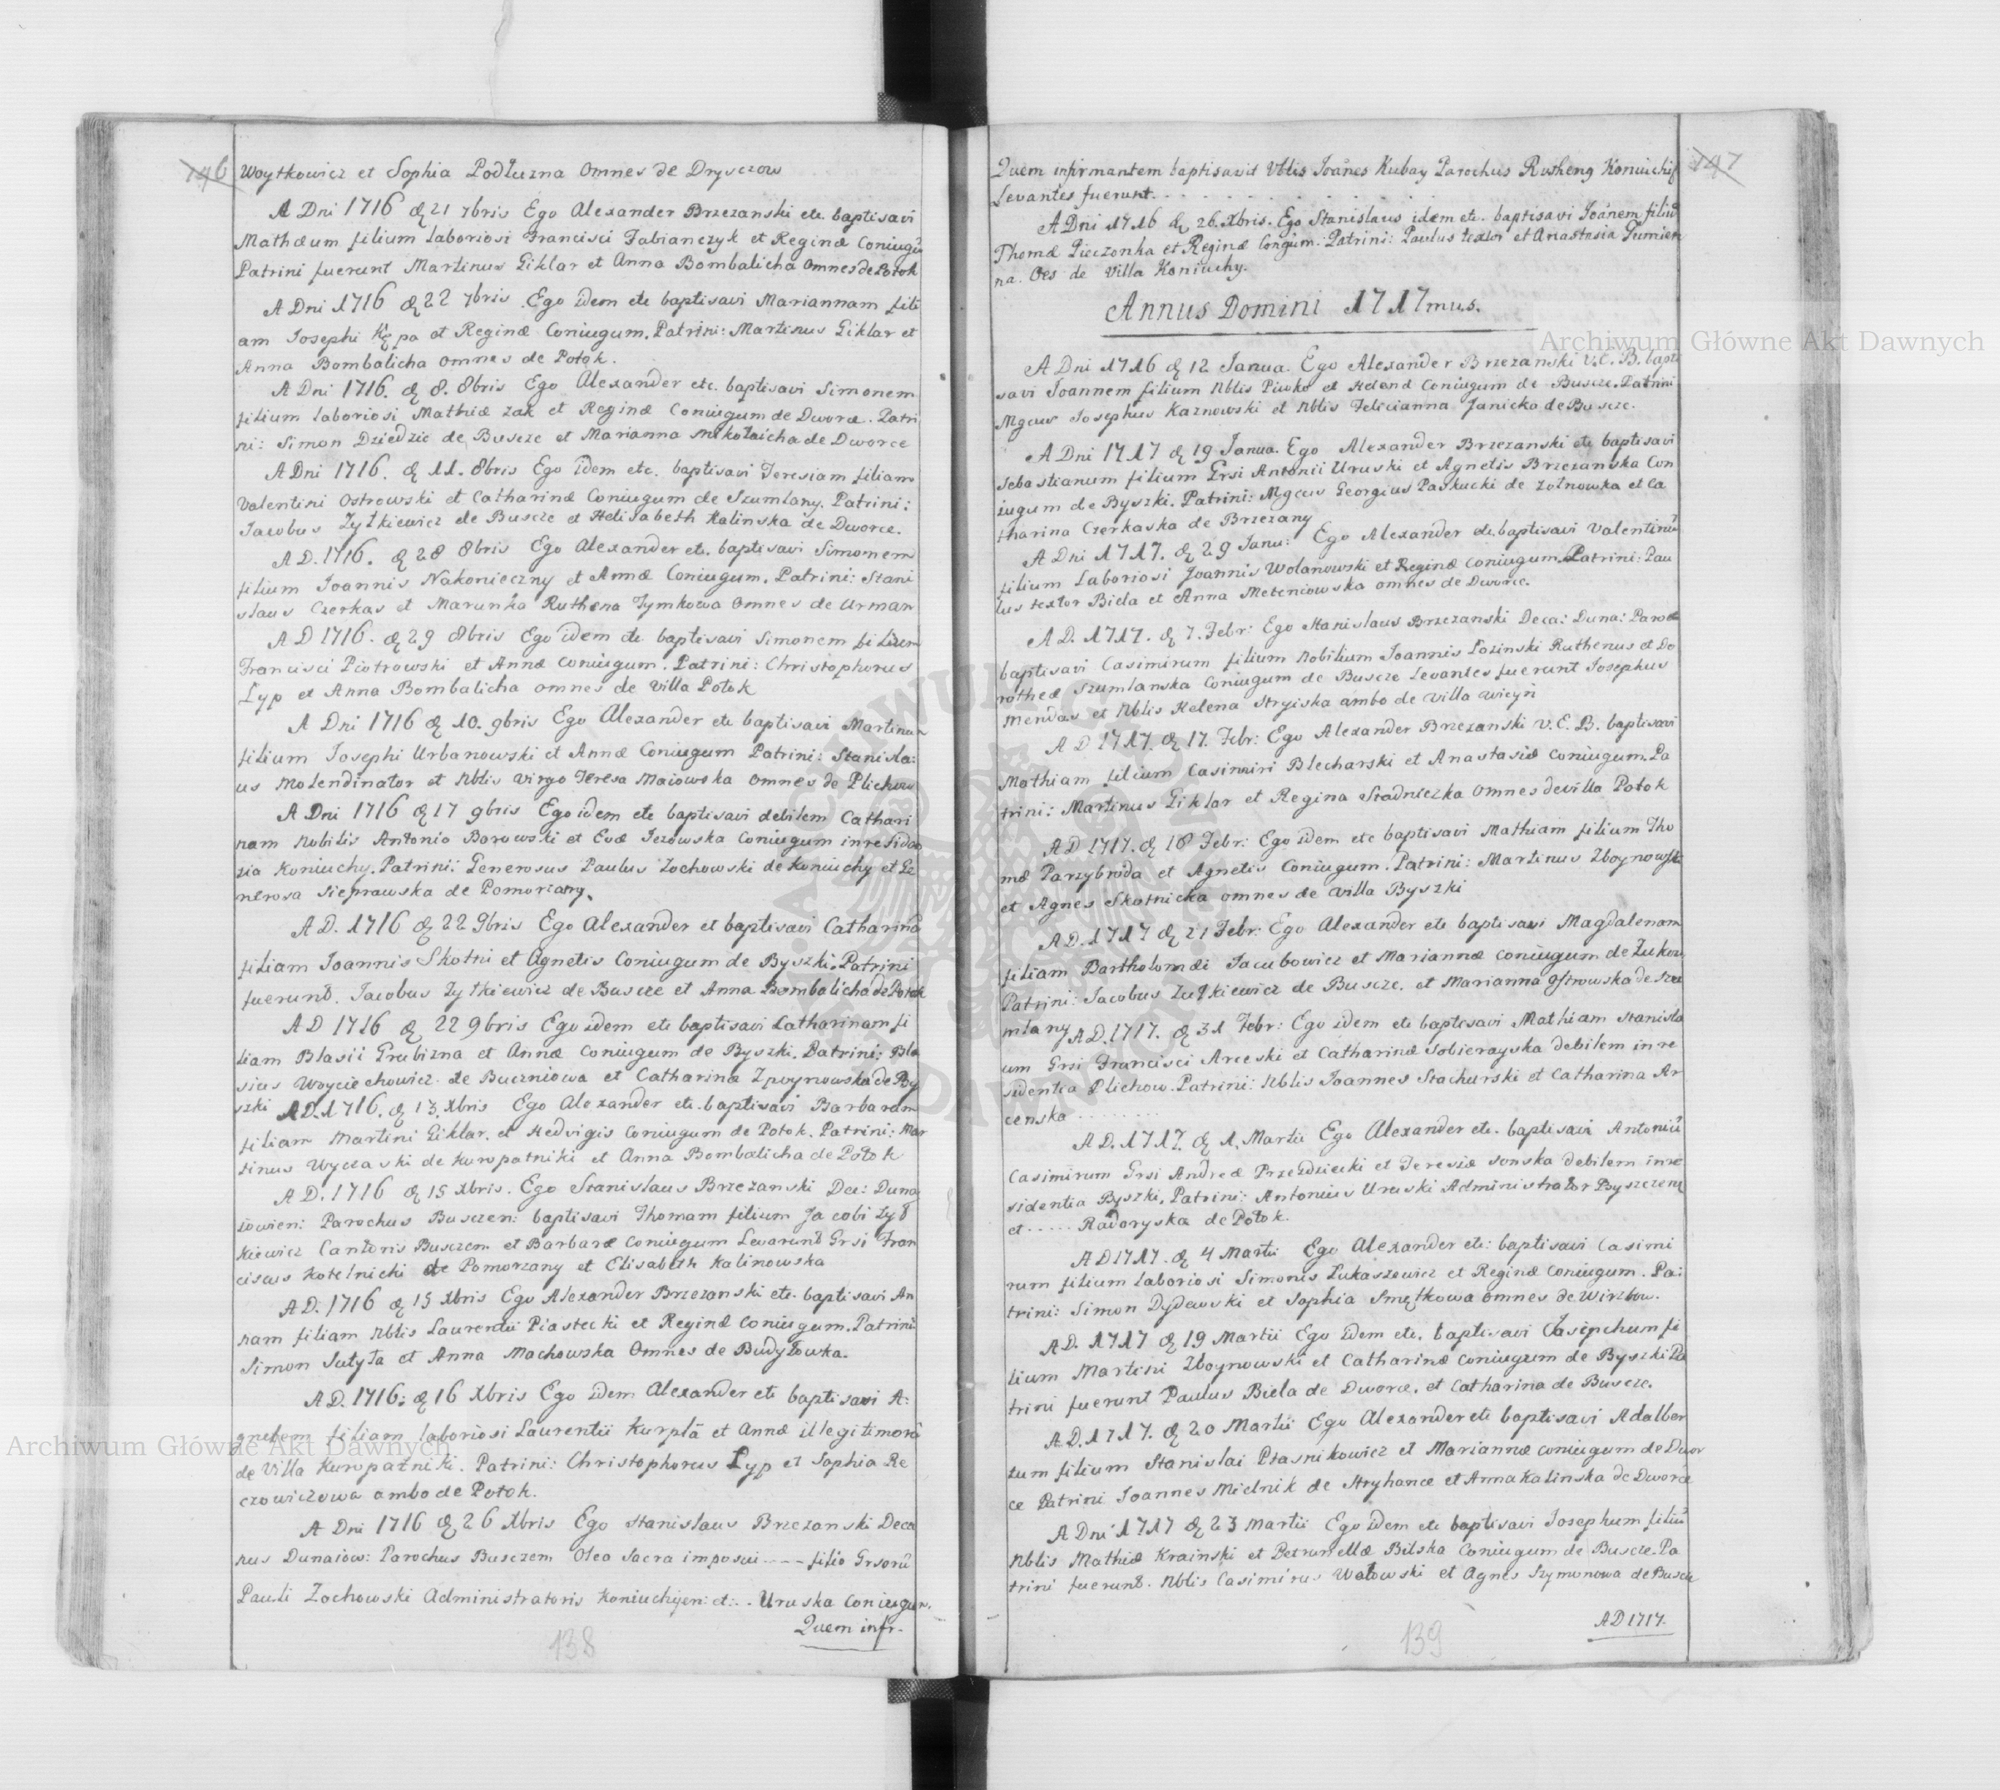 146
Woytkowicz et Sophia Podłuzna Omnes de Dryszow
A Dni 1716 d 21 7bris Ego Alexander Brzezanski etc baptisavi
Mathæum filium laboriosi Francisci Fabianczyk et Reginæ Coniugũ
Patrini fuerunt Martinus Giklar et Anna Bombalicha Omnes de Potok
A Dni 1716 d 22 7bris Ego idem etc baptisavi Mariannam fili
am Josephi Kępa et Reginæ Coniugum. Patrini: Martinus Giklar et
Anna Bombalicha omnes de Potok.
A Dni 1716. d 8. 8bris Ego Alexander etc. baptisavi Simonem
filium laboriosi Mathiæ Zak et Reginæ Coniugum de Dworce. Patri
ni: Simon Dziedzic de Buszcze et Marianna Mikołaicha de Dworce
A Dni 1716. d 11. 8bris Ego idem etc. baptisavi Teresiam filiam
Valentini Ostrowski et Catharinæ Coniugum de Szumlany. Patrini:
Jacobus Zytkiewicz de Buszcze et Helisabeth Kalinska de Dworce.
A D. 1716. d 28 8bris Ego Alexander etc. baptisavi Simonem
filium Joannis Nakonieczny et Annæ Coniugum. Patrini: Stani
slaus Czerkas et Marunka Ruthena Tymkowa Omnes de Urman
A D 1716. d 29 8bris Ego idem etc baptisavi Simonem filium
Francisci Piotrowski et Annæ Coniugum. Patrini: Christophorus
Lyp et Anna Bombalicha omnes de Villa Potok
A Dni 1716 d 10. 9bris Ego Alexander etc baptisavi Martinum
filium Josephi Urbanowski et Annæ Coniugum Patrini: Stanisla:
us Molendinator et Nblis Virgo Teresa Maiowska omnes de Plichow
A Dni 1716 d 17 9bris Ego idem etc baptisavi debilem Cathari
nam Nobilis Antonio Borowski et Evæ Jezowska Coniugum in residen
zia Koniuchy. Patrini: Generosus Paulus Zochowski de Koniuchy et Ge
nerosa Sieprawska de Pomorzany.
A D. 1716 d 22 9bris Ego Alexander et baptisavi Catharinã
filiam Joannis Skotni et Agnetis Coniugum de Byszki. Patrini
fuerunt. Jacobus Zytkiewicz de Buszcze et Anna Bombalicha de Potok
A D 1716 d 22 9bris Ego idem etc baptisavi Catharinam fi
liam Blasii Grubizna et Annæ Coniugum de Byszki. Patrini: Bla
sius Woyciechowicz de Buczniowa et Catharina Zwoynowska de By
szki A.D. 1716. d 13. Xbris Ego Alexander etc. baptisavi Barbaram
filiam Martini Giklar. et Hedvigis Coniugum de Potok. Patrini: Mar
tinus Wyczaski de Kuropatniki et Anna Bombalicha de Potok
A D. 1716 d 15 Xbris. Ego Stanislaus Brzezanski Dec: Duna
iowien: Parochus Busczen: baptisavi Thomam filium Jacobi Zyt
kiewicz Cantoris Busczem et Barbaræ Coniugum Levarunt Grsi Fran
ciscus Kotelnicki de Pomorzany et Elisabeth Kalinowska
A D. 1716 d 15 Xbris Ego Alexander Brzezanski etc. baptisavi An
nam filiam Nblis Laurentii Piastecki et Reginæ Coniugum. Patrini
Simon Sutyła et Anna Machowska Omnes de Budyłowka.
A D. 1716: d 16 Xbris Ego idem Alexander etc baptisavi A:
gnetem filiam laboriosi Laurentii Kurpla et Annæ illegitimorũ
de Villa Kuropatniki. Patrini: Christophorus Lyp et Sophia Re
czowiczowa ambo de Potok.
A Dni 1716 d 26 Xbris Ego Stanislaus Brzezanski Deca
nus Dunaiow: Parochus Busczem Olea Sacra imposui ---- filio Grsorũ
Pauli Zochowski Administratoris Koniuchijen: et: . . Uruska Coniugum.
Quem infr-
138
147
Quem infirmantem baptisavit Vblis Joães Kubay Parochus Rutheng Koniuchij
Levantes fuerunt. . . . .
A Dni 1716 d 26. Xbris. Ego Stanislaus idem etc. baptisavi Joãnem filiũ
Thomæ Pieczonka et Reginæ Congum. Patrini: Paulus textor et Anastasia Gumien
na. Oes de Villa Koniuchy.
Annus Domini 1717mus.
A Dni 1716 d 12 Janua. Ego Alexander Brzezanski V.C.B. bapti
savi Joannem filium Nblis Piwko et Helenæ Coniugum de Buszcze. Patrini
Mgcus Josephus Kaznowski et Nblis Felicianna Janicka de Buszcze.
A Dni 1717 d 19 Janua. Ego Alexander Brzezanski etc baptisavi
Sebastianum filium Grsi Antonii Uruski et Agnetis Brzezanska Con
iugum de Byszki. Patrini: Mgcus Georgius Paskucki de Zolnowka et Ca
tharina Czerkaska de Brzezany
A Dni 1717. d 29 Janu: Ego Alexander etc. baptisavi Valentinũ
filium Laboriosi Joannis Wolanowski et Reginæ Coniugum. Patrini: Pau
lus textor Biela et Anna Meteniowska omnes de Dworce.
A D. 1717. d 7. Febr: Ego Stanislaus Brzezanski Deca: Duna: Paroch
baptisavi Casimirum filium Nobilium Joannis Łozinski Ruthenus et Do
rotheæ Szumlanska Coniugum de Buszcze Levantes fuerunt Josephus
Mendas et Nblis Helena Stryiska ambo de Villa Wicyń
A D 1717. d 17. Febr: Ego Alexander Brzezanski V.C.B. baptisavi
Mathiam filium Casimiri Blecharski et Anastasiæ Coniugum. Pa
trini: Martinus Giklar et Regina Stadniczka omnes de villa Potok
A D 1717. d 18 Febr: Ego idem etc baptisavi Mathiam filium Tho
mæ Parzybroda et Agnetis Coniugum. Patrini: Martinus Zboynowski
et Agnes Skotnicka omnes de Villa Byszki
A D. 1717 d 21 Febr: Ego Alexander etc baptisavi Magdalenam
filiam Bartholomæi Jacubowicz et Mariannæ Coniugum de Żukow,
Patrini: Jacobus Zytkiewicz de Buszcze. et Marianna Ostrowska de Szu
mlany A D. 1717. d 31 Febr: Ego idem etc baptisavi Mathiam Stanisla
um Grsi Francisci Arceski et Catharinæ Sobierayska debilem in re
sidentia Plichow. Patrini: Nblis Joannes Stachurski et Catharina Ar
censka . . . . . . . .
A D. 1717. d 1. Martii Ego Alexander etc. baptisavi Antoniũ
Casimirum Grsi Andreæ Przezdziecki et Teresiæ Sonska debilem in re
sidentia Byszki, Patrini: Antonius Uruski Administrator Byszczeni
et ..... Radoryska de Potok.
A D 1717. d 4 Martii Ego Alexander etc: baptisavi Casimi
rum filium laboriosi Simonis Łukaszowicz et Reginæ Coniugum. Pa:
trini: Simon Dydewski et Sophia Smętkowa omnes de Wirzbow.
A D. 1717 d 19 Martii Ego idem etc. baptisavi Josephum fi
lium Martini Zboynowski et Catharinæ Coniugum de Byszki Pa
trini fuerunt Paulus Biela de Dworce. et Catharina de Buszcze.
A D. 1717. d 20 Martii Ego Alexander etc baptisavi Adalber
tum filium Stanislai Ptasnikowicz et Mariannæ Coniugum de Dwor
ce Patrini Joannes Mielnik de Stryhance et Anna Kalinska de Dworce
A Dni 1717 d 23 Martii Ego idem etc baptisavi Josephum filiũ
Nblis Mathiæ Krainski et Petrunellæ Bilska Coniugum de Buszcze. Pa
trini fuerunt. Nblis Casimirus Watowski et Agnes Szymonowa de Buszcze
A D 1717.
139
Archiwum Główne Akt Dawnych
Archiwum Główne Akt Dawnych